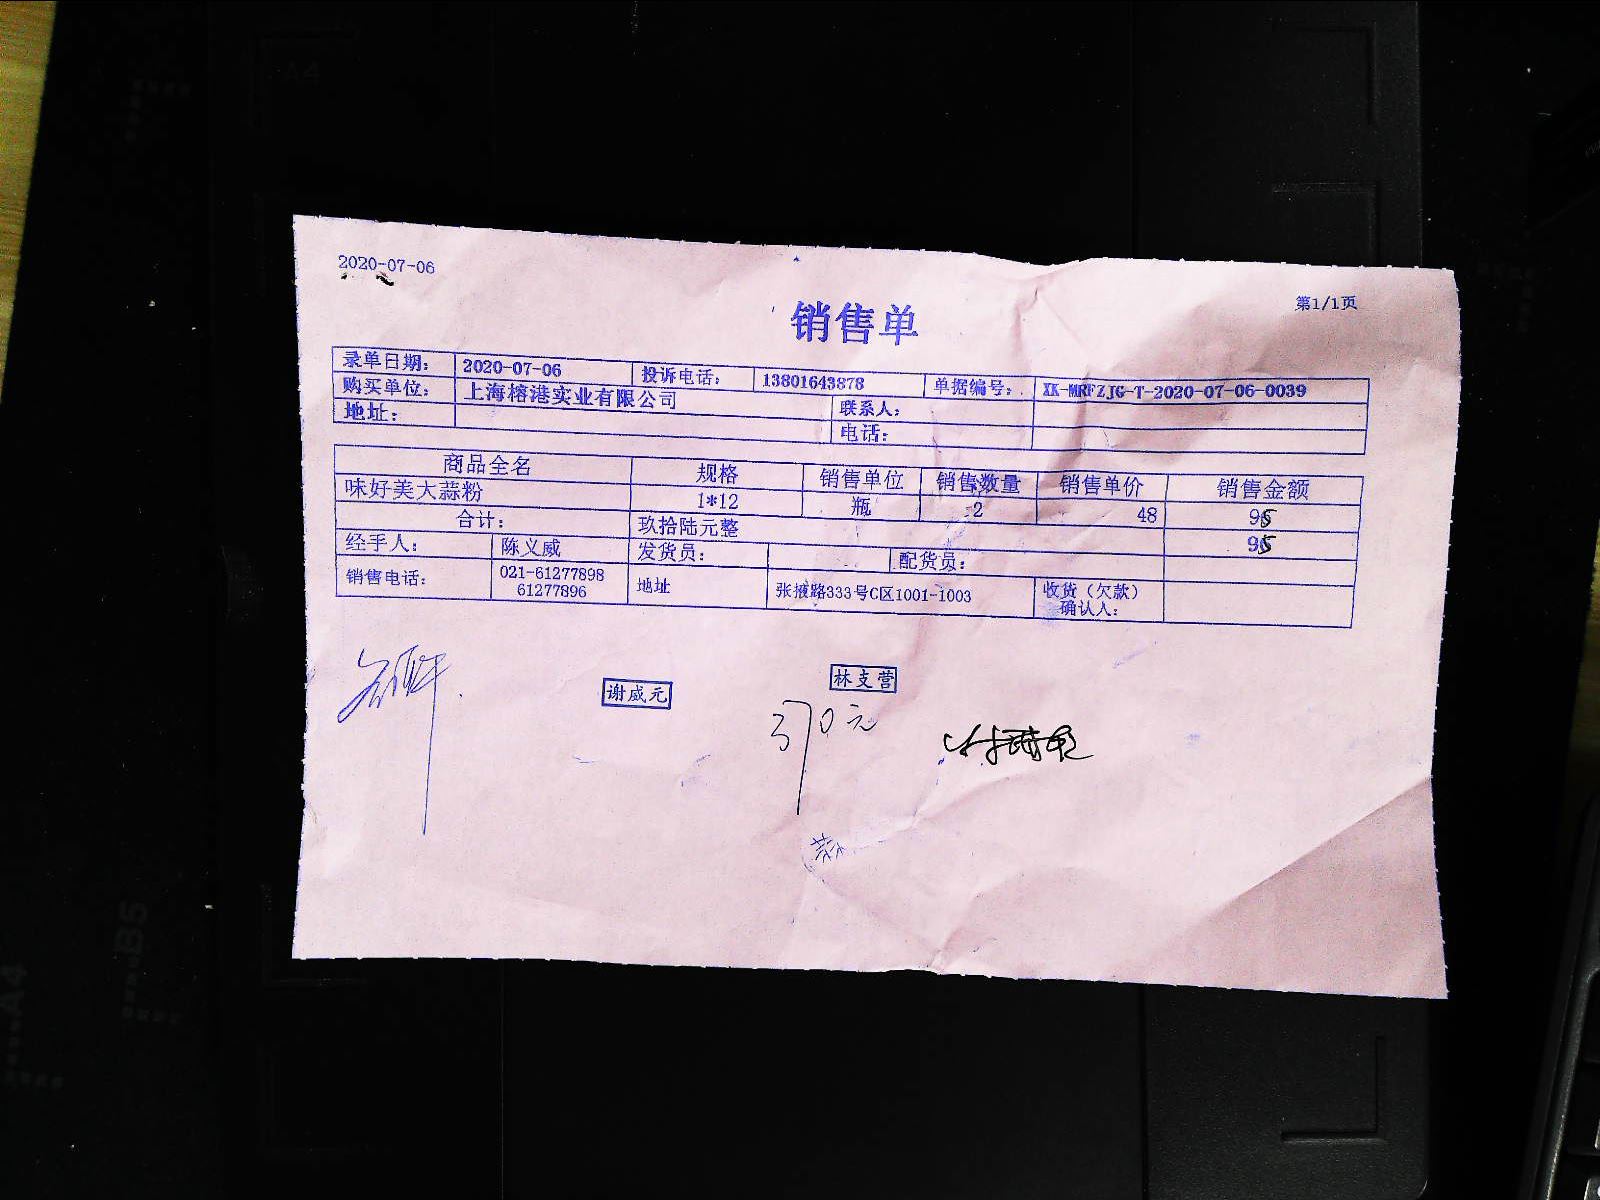 2020-07-06
第1/1页
销售单
录单日期： 2020-07-06 投诉电话： 13801643878 单据编号： XK-MRFZJG-T-2020-07-06-0039
购买单位： 上海榕港实业有限公司 联系人：
地址： 电话：
商品全名 规格 销售单位 销售数量 销售单价 销售金额
味好美大蒜粉 1*12 瓶 2 48 95
合计： 玖拾陆元整 95
经手人： 陈义威 发货员： 配货员：
销售电话： 021-61277898 地址 张掖路333号C区1001-1003 收货（欠款）
61277896 确认人：
林支营
谢威元
370元
A4
B5
A4